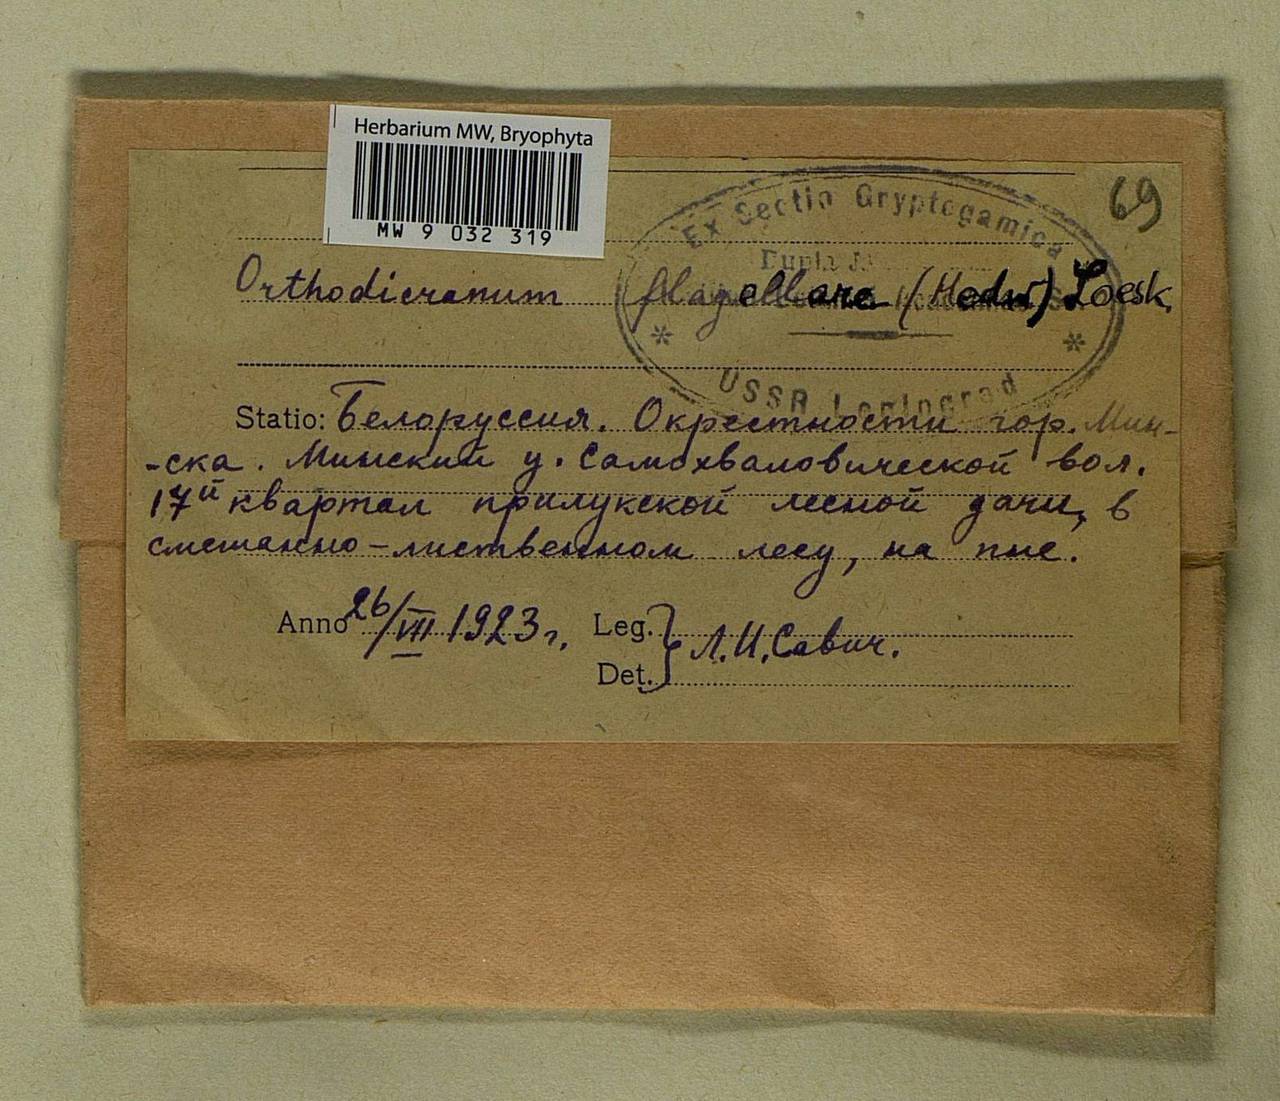 Herbarium MW, Bryophyta
MW 9 032 319
69
Ex Sectio Gryptogamica
USSR Leningrad
Orthodicranum flagellare (Hedw) Loesk.
Statio: Белоруссия. Окрестности гор. Мин-
-ска. Минский у. Самохваловической вол.
17й квартал прилукской лесной дачи, в
смешанно-лиственном лесу, на пне.
Anno 26/VII 1923 г. Leg. } Л.И. Савич.
Det.